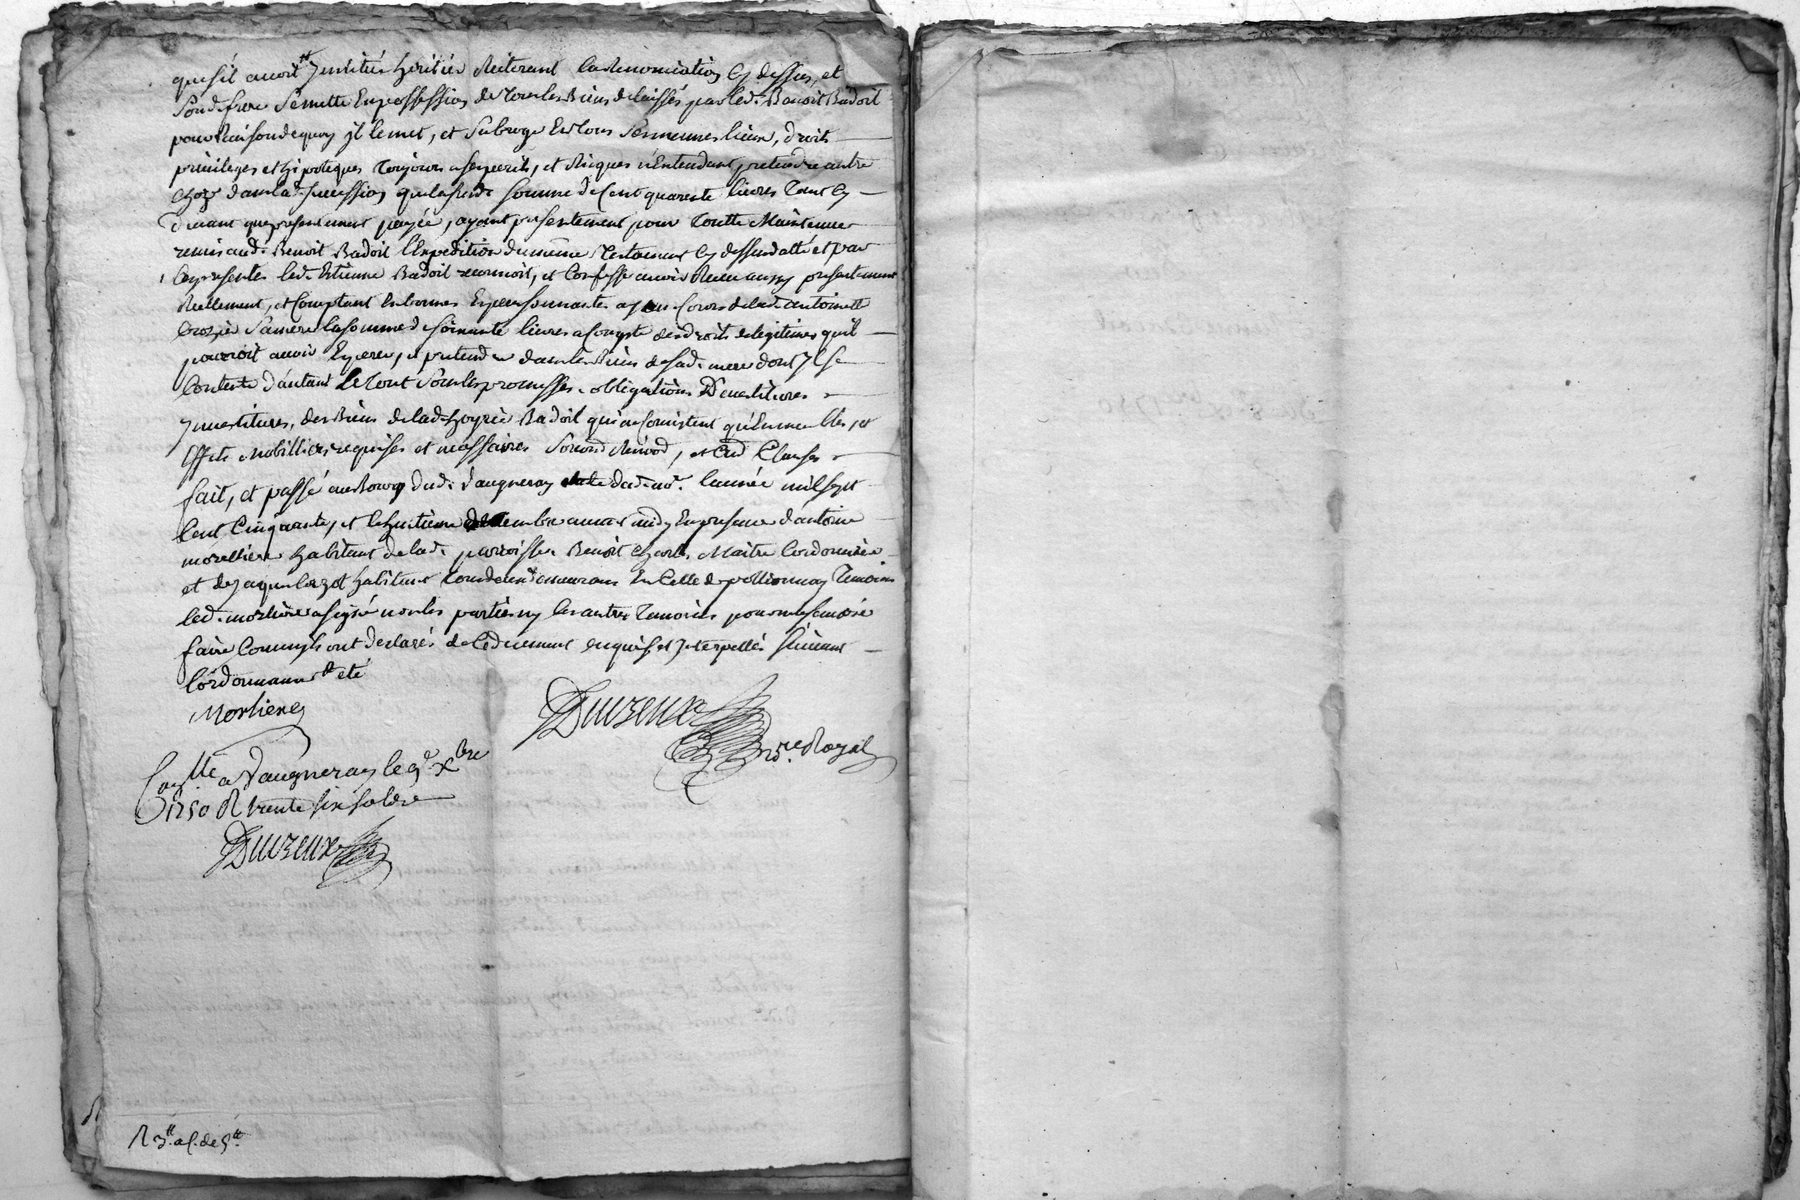 quil avoit Institué heritier Reiterant la Renonciation Cy dessus, et
Sond. frere Se mette En possession de Tous les Biens delaissés par led. Benoit Badoit
pour Raison de quoy il le met, et Subroge En tous Ses mesmes lieux, droits
privileges et hipoteques Toujours a Ses perils, et Risques n'Entendant pretendre autre
Choze dans lad. Succession que lasusd. Somme de Cent quarente livres Tant Cy
devant que presentement payée, ayant presentement pour Toutte Maintenue
remis aud. Benoit Badoit l'Expedition du mesme Testament Cy dessus datté et par
Ces presentes led. Estienne Badoit reconnoit, et Confesse avoir Receu aussy presentement
Reellement, et Comptant En bonnes Especes Sonnantes ayant Cours de lad. antoinette
Crozier Sa mere la Somme de Soixante livres a Compte des droits de legitimes quil
pourroit avoir Esperer, et pretendre dans les Biens de Sad. mere dont Il Se
Contente d'autant Le Tout Sous les promesses, obligations Devestitures
Investitures, des Biens de lad. hoyrie Badoit qui ne Consistent qu'En meubles, et
Effets Mobilliers requises et necessaires Renond, et Clauses
fait, et passé au Bourg dud. Vaugneray lad. année mil Sept
Cent Cinquante, et le huitieme decembre avant midy En presence d'antoine
morelliere habitant de lad. paroisse Benoit Charles Maitre Cordonnier
et de Jaques habitant Tous deux demeurans En Celle de pollionnay Temoins
led. morliere a Signé non les parties ny les autres Temoins pour ne le Scavoir
faire Comme ils ont declarés de Ce duement enquis et Interpellés Suivant
l'ordonnance
Morliere
Duvzeux
n.re Royal
Con.lle a Vaugneray le 9.e Xbre
1750 R trente Six Sols
Duvzeux
R 3.tt